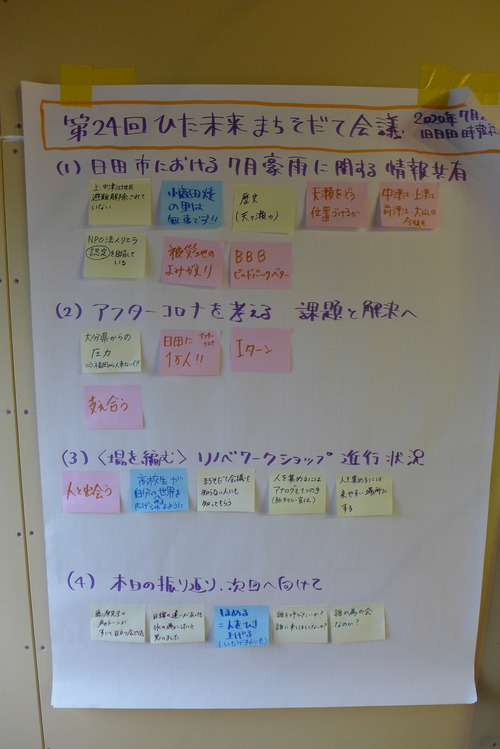 第24回ひた未来まちそだて会議
2020年7月
旧日田
(1) 日田市における 7月豪雨に関する 情報共有
上・中津江は
避難解除されて
いない
小鹿田焼
の里は
歴史
(天ヶ瀬の)
天瀬をどう
位置づけるか
中津江 上津江
前津江 大山の
今後も
NPO法人リエラ
認定を目指して
いる
被災地の
よみがえり
BBB
ビルドバックベター
(2) アフターコロナを考える 課題と解決へ
大分県からの
圧力
日田に
1万人!!
アフター
コロナ
Iターン
支え合う
(3) 〈場を編む〉リノベワークショップ 進行状況
人と出会う
高校生が
自分の世界を
広げられるように
まちそだて会議を
知らない人にも
知ってもらう
人を集めるには
アナログも1つの手
人を集めるには
来やすい場所に
する
(4) 本日の振り返り、次回へ向けて
ほめる
=人をひき
上げる
誰の為の会
なのか?